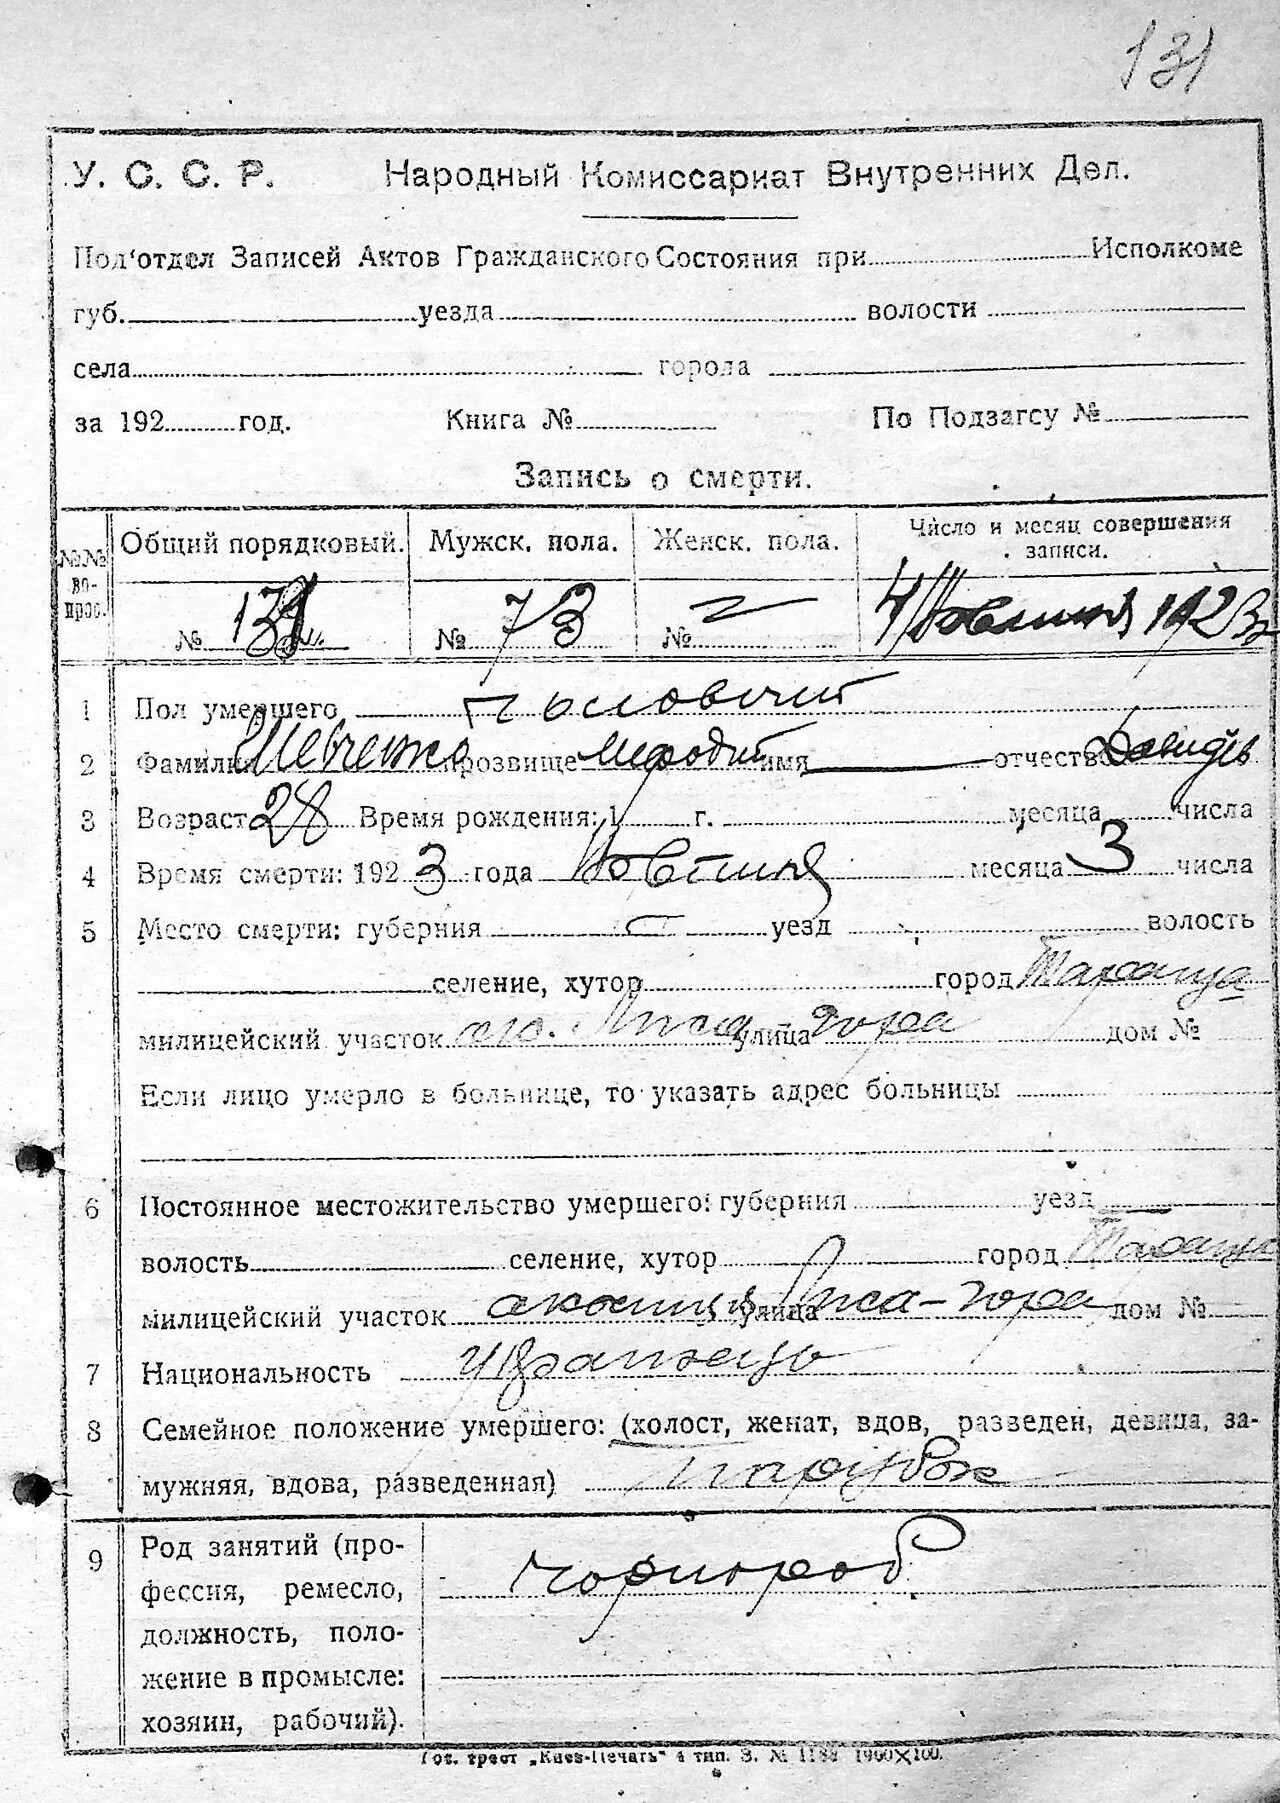 131
У. С. С. Р. Народный Комиссариат Внутренних Дел.
Под'отдел Записей Актов Гражданского Состояния при Исполкоме
губ. уезда волости
села города
за 192 год. Книга № По Подзагсу №
Запись о смерти.
№№ вопрос. Общий порядковый. Мужск. пола. Женск. пола. Число и месяц совершения записи.
№ 131 № 73 № 4 Жовтня 1923
1 Пол умершего Чоловічий
2 Фамилия Шевченко прозвище Мефодій имя отчество Давидів
3 Возраст 28 Время рождения: 1 г. месяца числа
4 Время смерти: 1923 года Жовтня месяца 3 числа
5 Место смерти: губерния уезд волость
селение, хутор город Тараща
милицейский участок Лиса улица Гора дом №
Если лицо умерло в больнице, то указать адрес больницы
6 Постоянное местожительство умершего: губерния уезд
волость селение, хутор город Тараща
милицейский участок околиця улица Лиса-Гора дом №
7 Национальность Українець
8 Семейное положение умершего: (холост, женат, вдов, разведен, девица, за-
мужняя, вдова, разведенная) Парубок
9 Род занятий (про-
фессия, ремесло,
должность, поло-
жение в промысле:
хозяин, рабочий).
чорнороб
Гос. трест „Киев-Печать“ 4 тип. З. № 1188 1900×100.